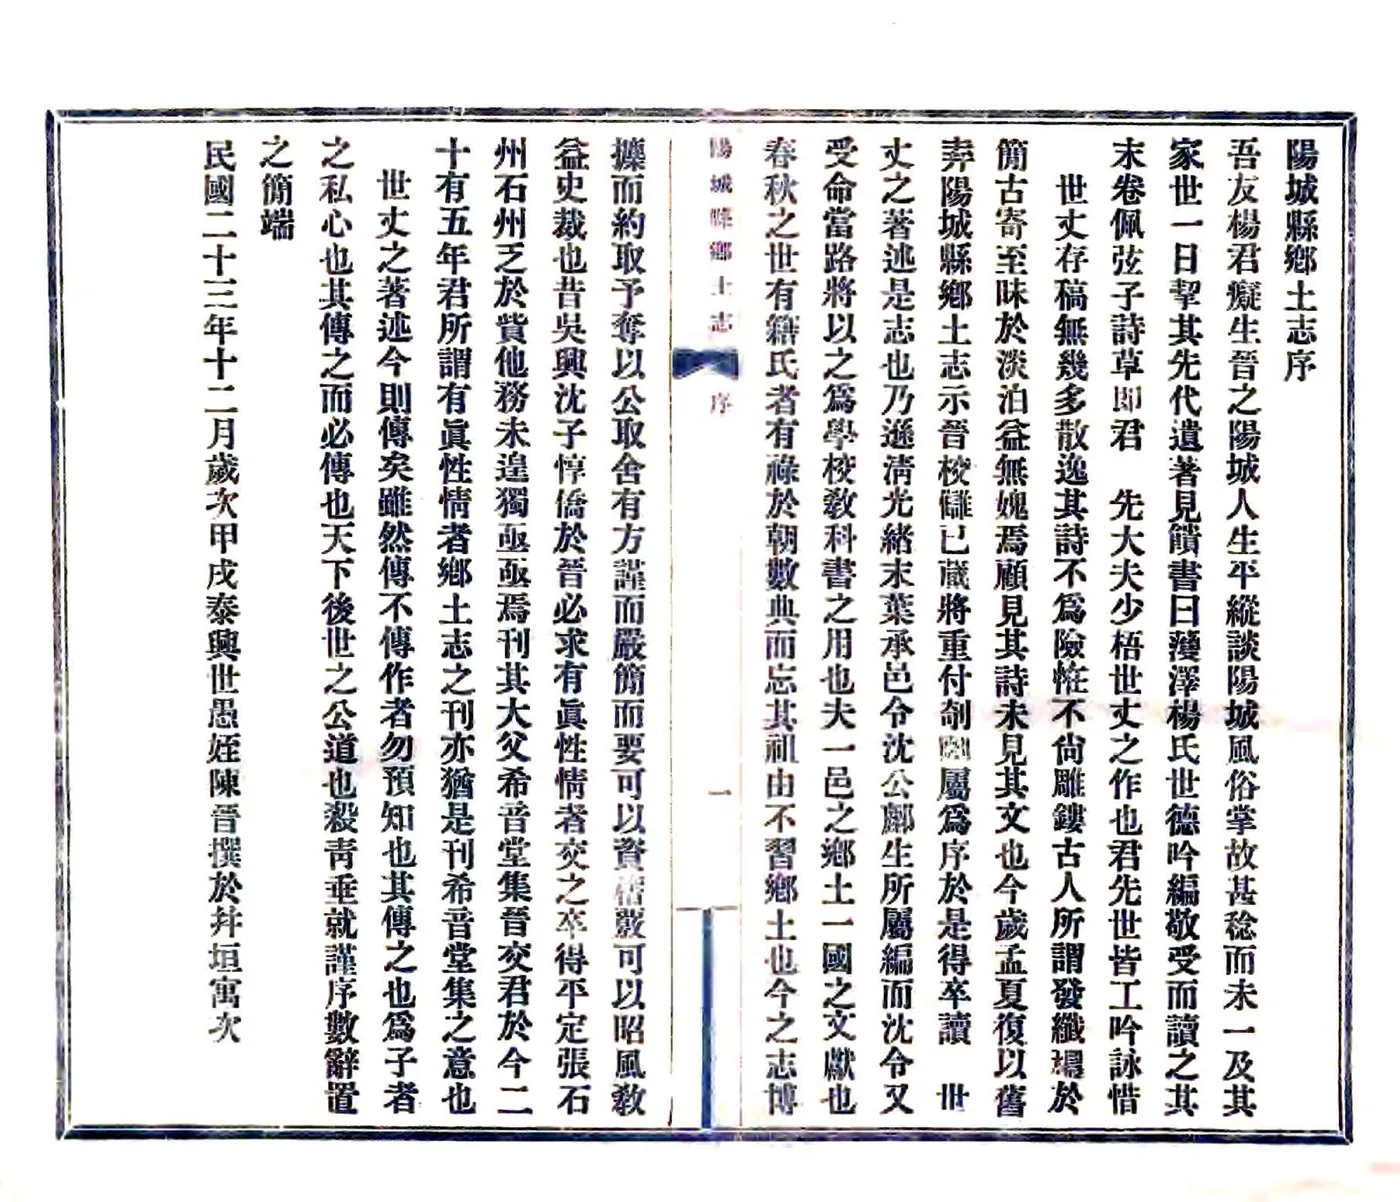 陽城縣鄉土志序
吾友楊君癡生晉之陽城人生平縱談陽城風俗掌故甚稔而未一及其
家世一日挈其先代遺著見饋書曰濩澤楊氏世德吟編敬受而讀之其
末卷佩弦子詩草即君　先大夫少梧世丈之作也君先世皆工吟詠惜
世丈存稿無幾多散逸其詩不爲險怪不尙雕鏤古人所謂發纖穠於
簡古寄至味於淡泊益無媿焉顧見其詩未見其文也今歲孟夏復以舊
弆陽城縣鄉土志示晉校讎已蕆將重付剞劂屬爲序於是得卒讀　世
丈之著述是志也乃遜淸光緒末葉承邑令沈公鄺生所屬編而沈令又
受命當路將以之爲學校敎科書之用也夫一邑之鄉土一國之文獻也
春秋之世有籍氏者有祿於朝數典而忘其祖由不習鄉土也今之志博
陽城縣鄉土志　序　一
攗而約取予奪以公取舍有方謹而嚴簡而要可以資稽覈可以昭風敎
益史裁也昔吳興沈子惇僑於晉必求有眞性情者交之卒得平定張石
州石州乏於貲他務未遑獨亟亟焉刊其大父希音堂集晉交君於今二
十有五年君所謂有眞性情者鄉土志之刊亦猶是刊希音堂集之意也
世丈之著述今則傳矣雖然傳不傳作者勿預知也其傳之也爲子者
之私心也其傳之而必傳也天下後世之公道也殺靑垂就謹序數辭置
之簡端
民國二十三年十二月歲次甲戌泰興世愚姪陳晉撰於幷垣寓次